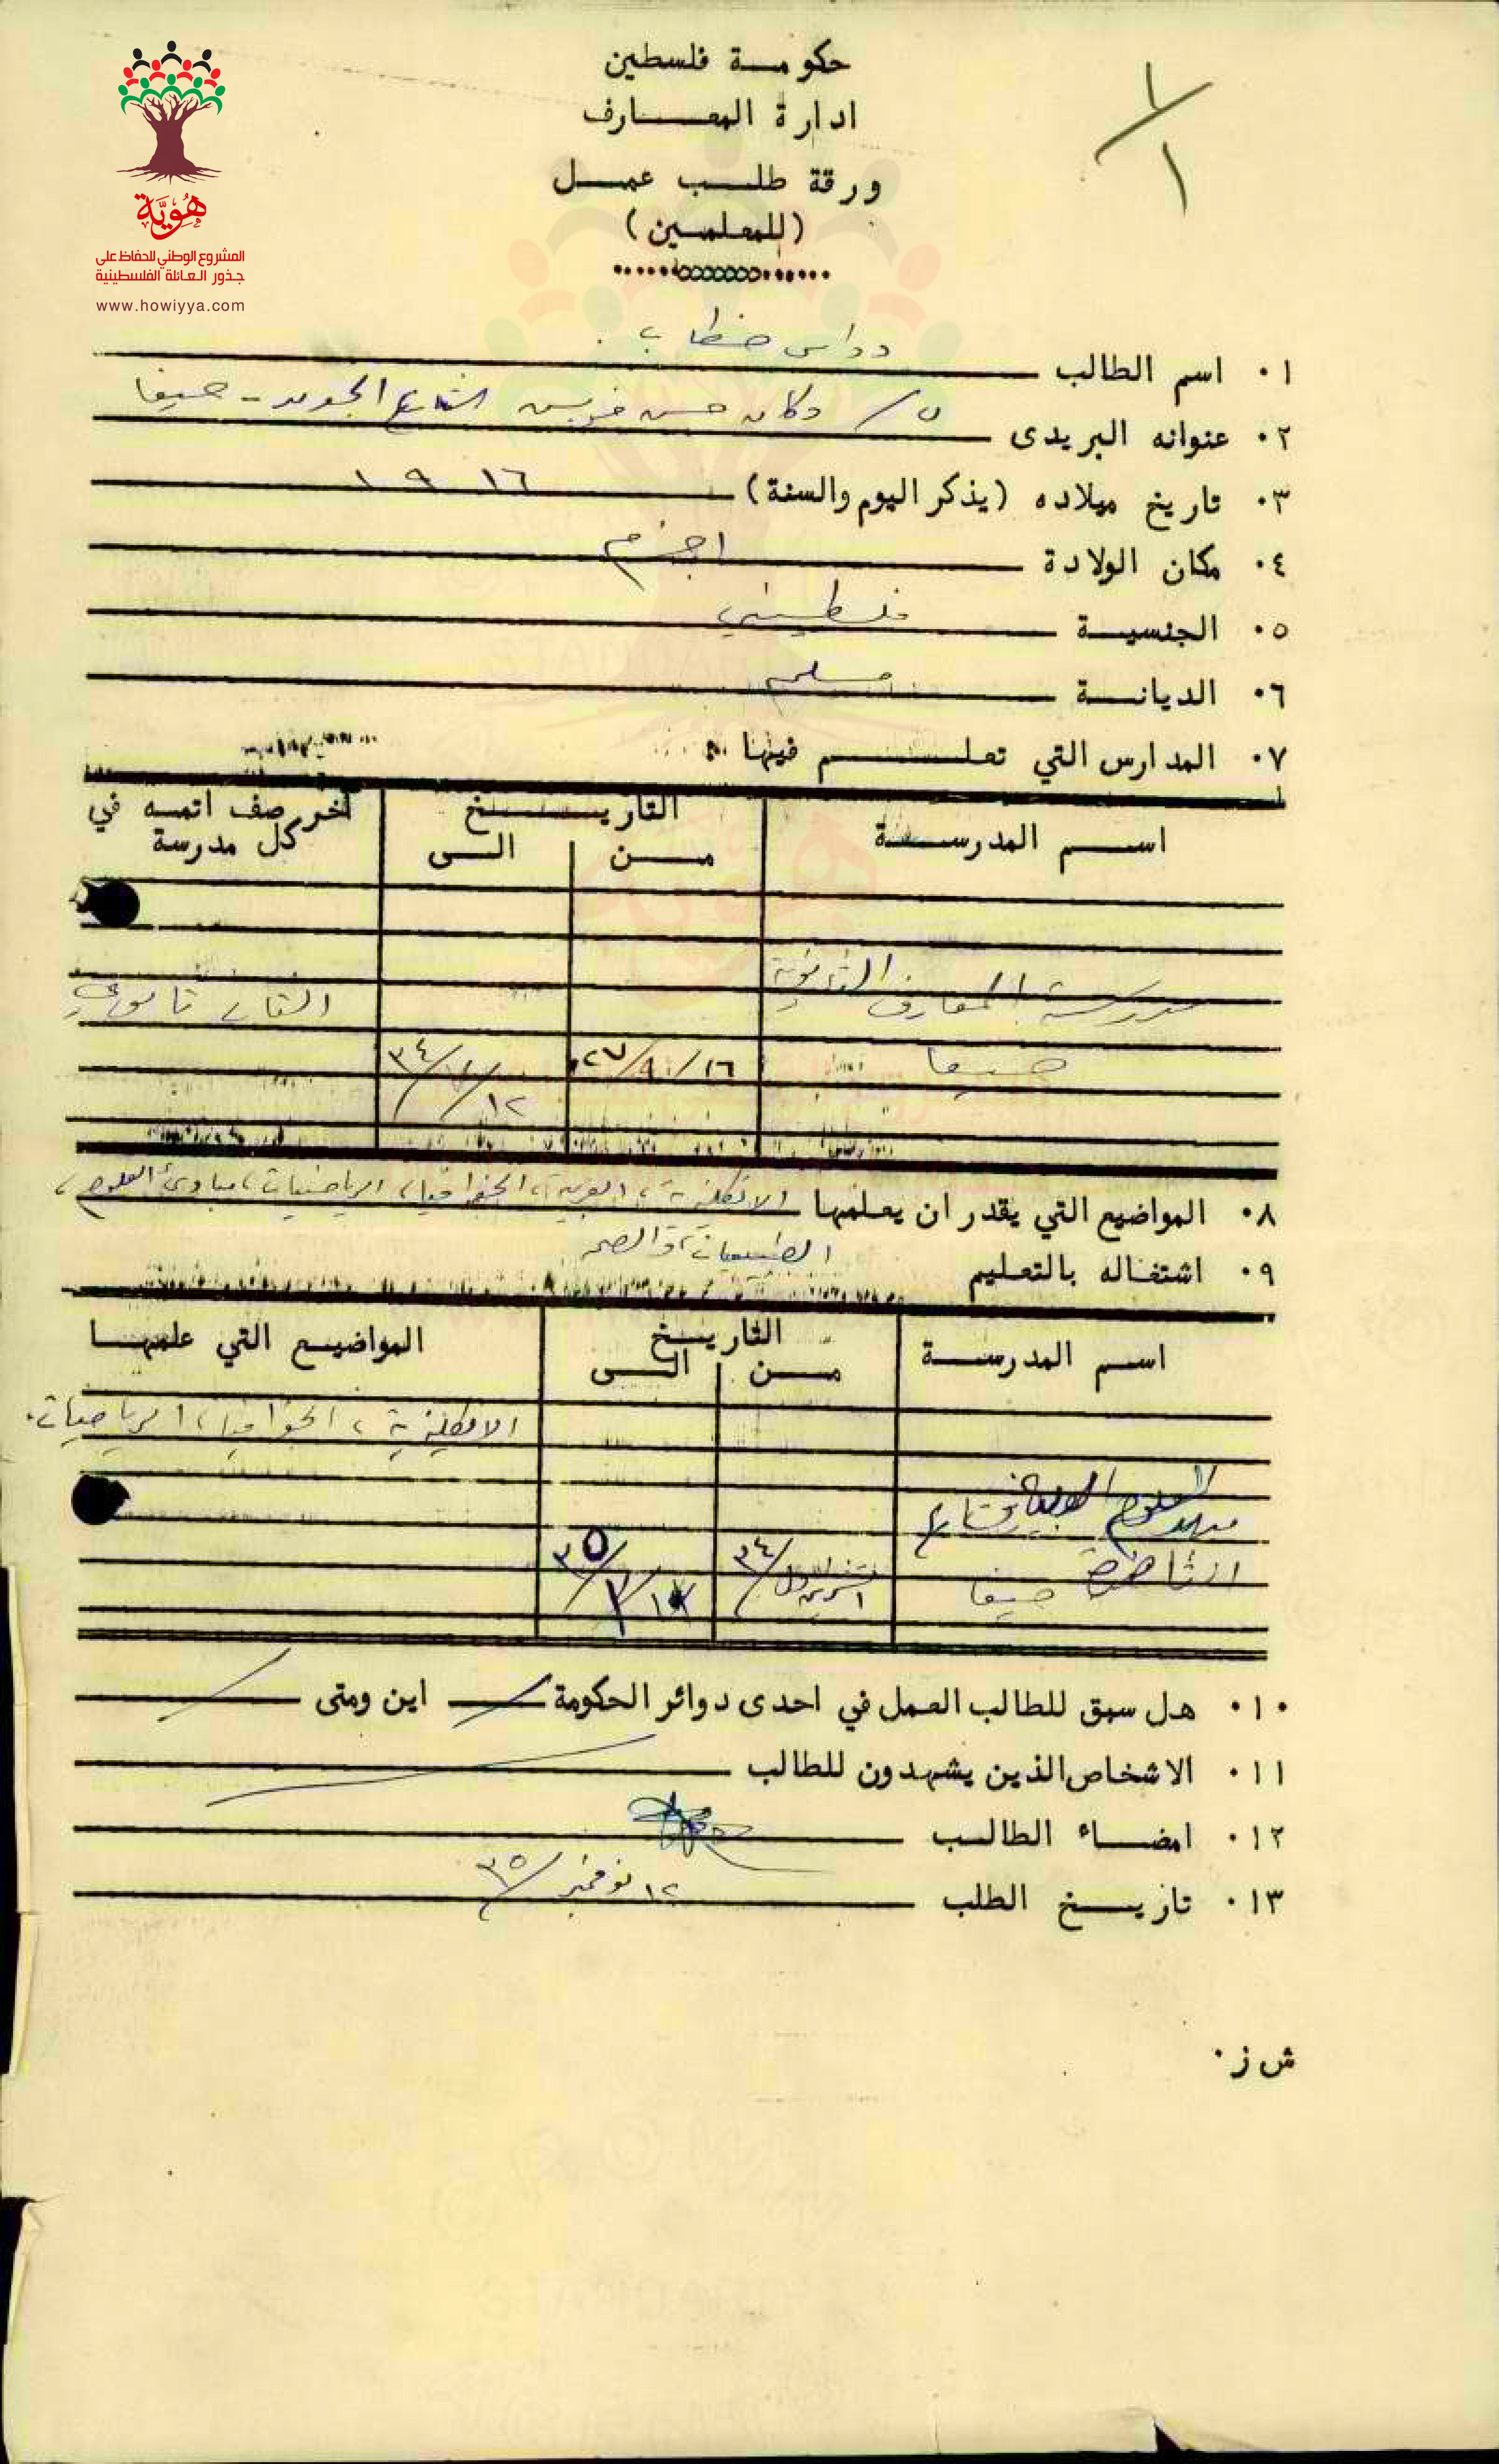 هوية
المشروع الوطني للحفاظ على
جذور العائلة الفلسطينية
www.howiyya.com
حكومة فلسطين
ادارة المعارف
ورقة طلب عمل
(للمعلمين)
١/١
٠١ اسم الطالب
٠٢ عنوانه البريدى دكان حسن الشارع الجديد - حيفا
٠٣ تاريخ ميلاده (يذكر اليوم والسنة) ١٩١٦
٠٤ مكان الولادة اجزم
٠٥ الجنسية فلسطيني
٠٦ الديانة مسلم
٠٧ المدارس التي تعلم فيها
اسم المدرسة التاريخ من الى آخر صف اتمه في كل مدرسة
مدرسة المعارف الثانوية ثانوي
حيفا
٠٨ المواضيع التي يقدر ان يعلمها الانكليزية، العربية، الجغرافيا، الرياضيات، مبادئ العلوم،
الطبيعيات، والصحة
٠٩ اشتغاله بالتعليم
اسم المدرسة التاريخ من الى المواضيع التي علمها
الانكليزية، الجغرافيا، الرياضيات.
الناصرة حيفا
٠١٠ هل سبق للطالب العمل في احدى دوائر الحكومة اين ومتى
٠١١ الاشخاص الذين يشهدون للطالب
٠١٢ امضاء الطالب
٠١٣ تاريخ الطلب ١٢ نوفمبر/٣٥
ش ز٠